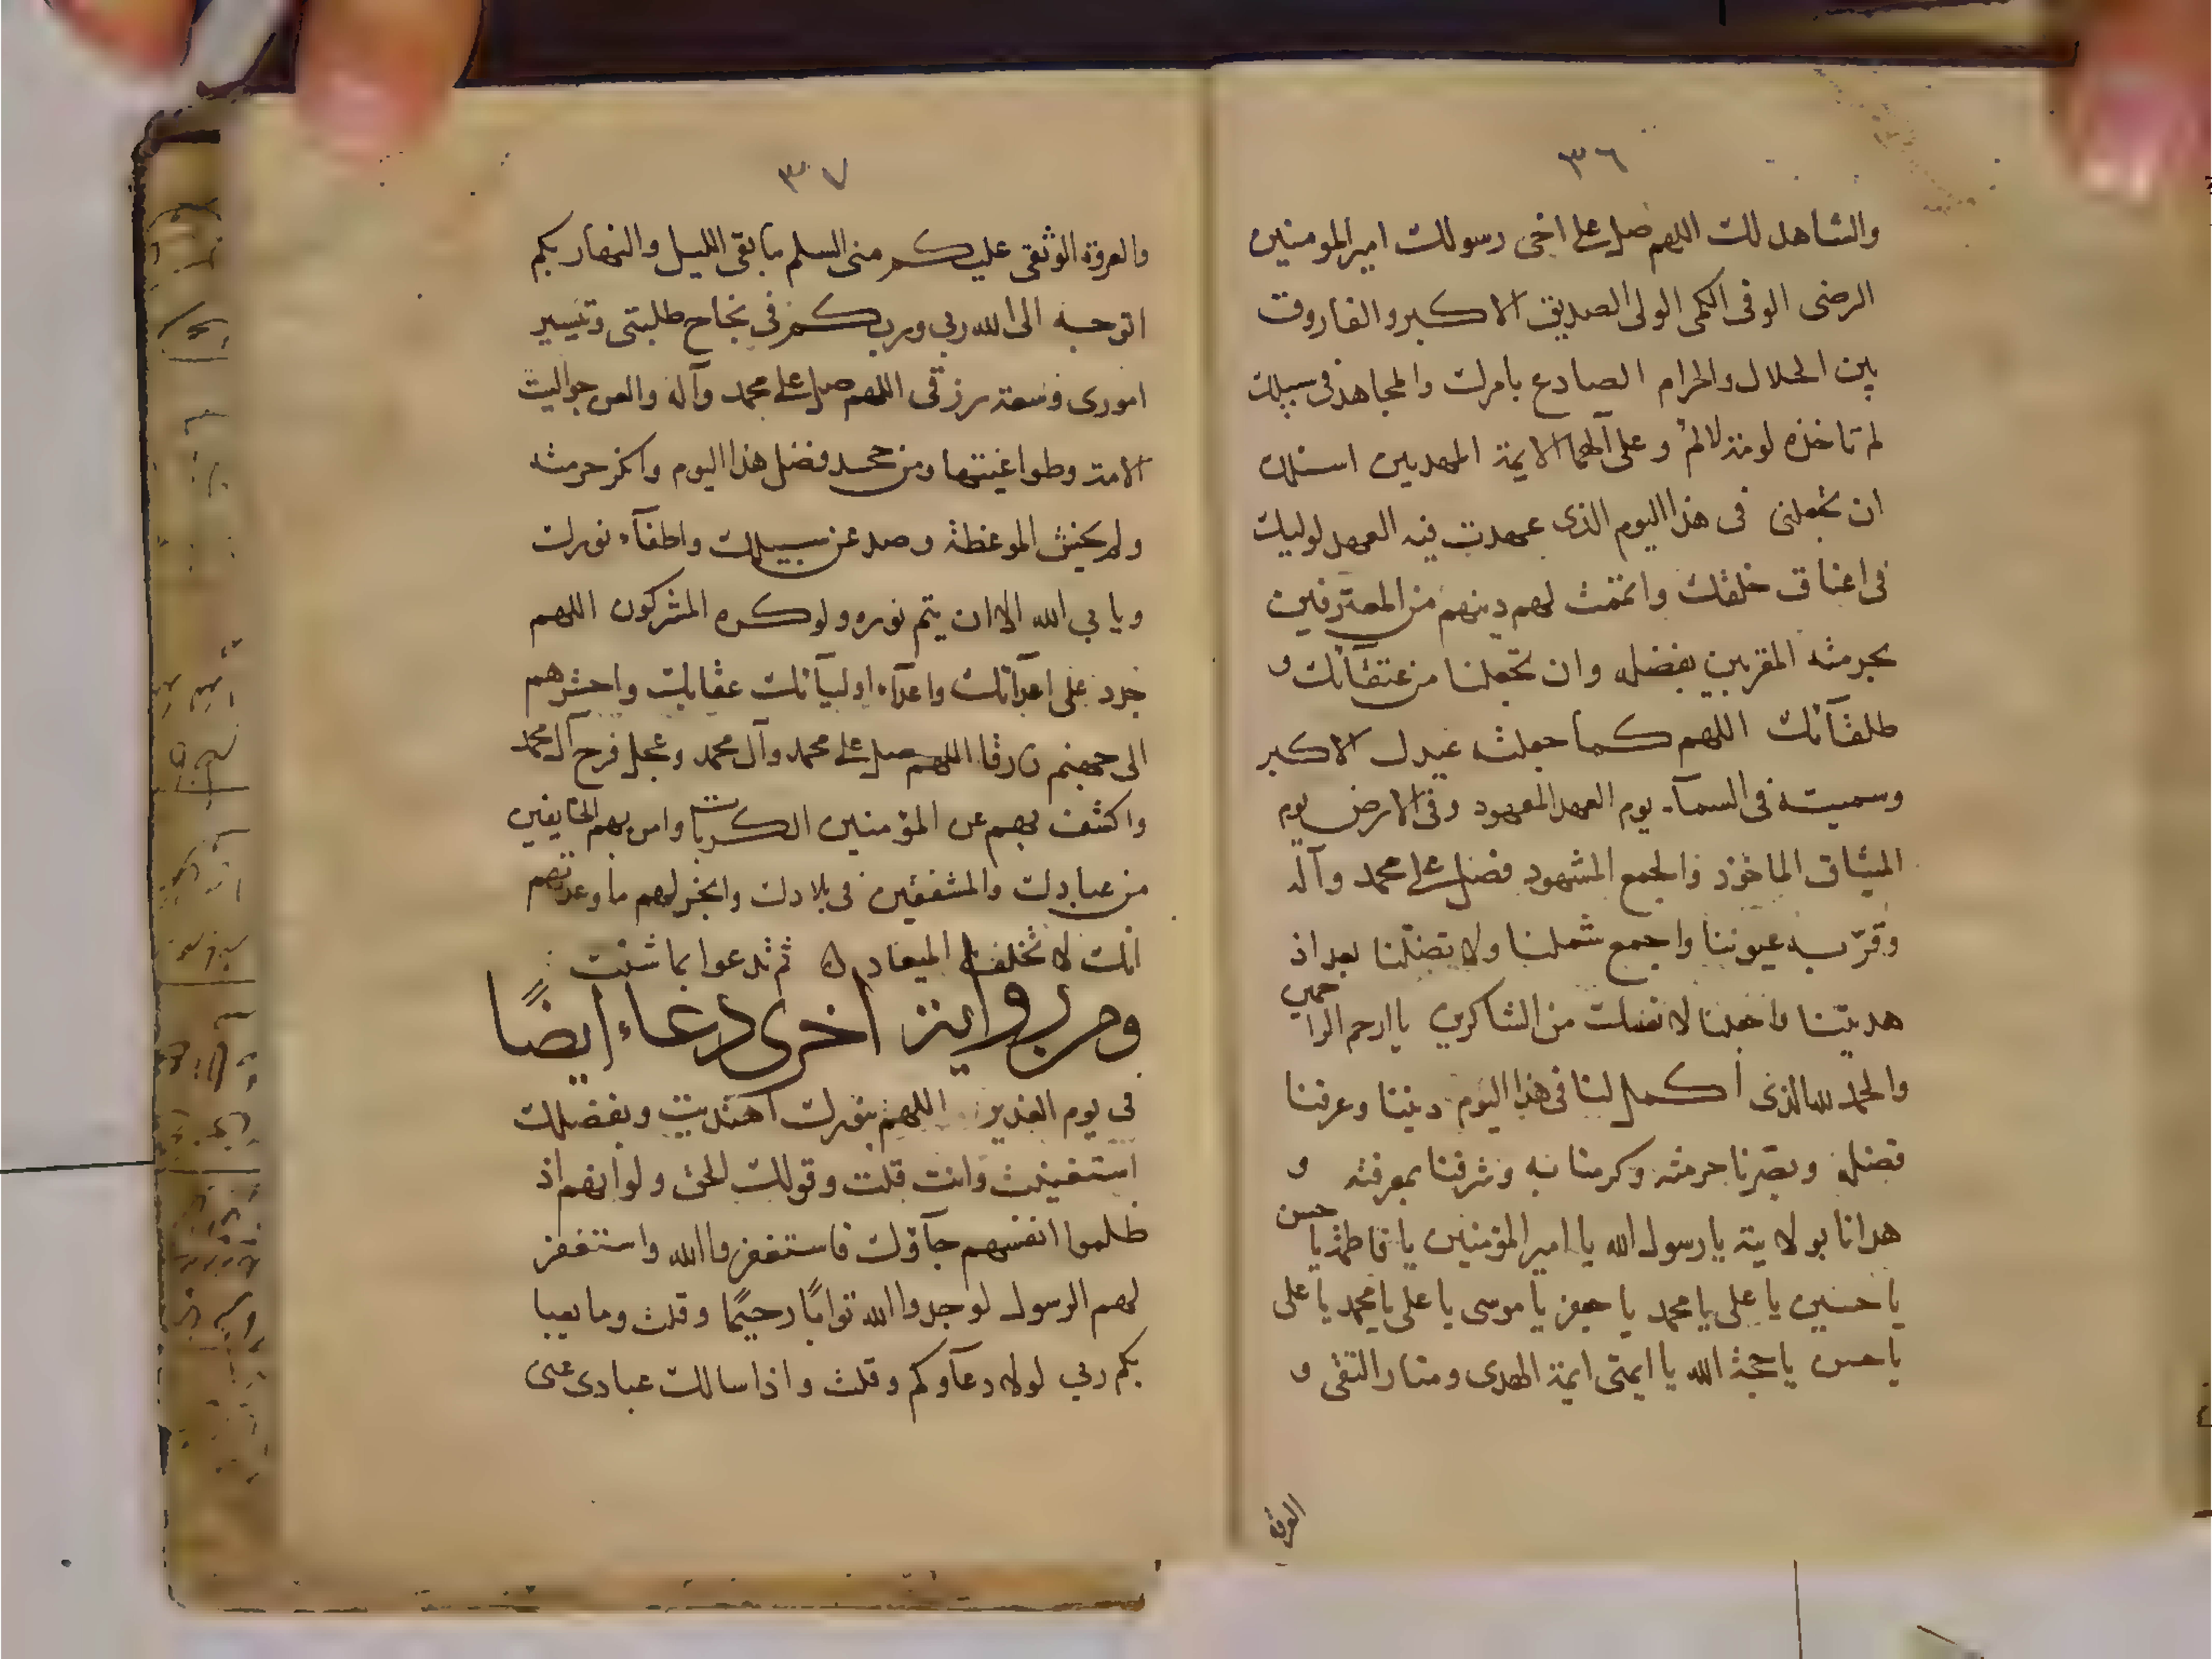 ٣٦
والشاهد لك اللهم صل على اخى رسولك امير المومنين
الرضى الوفى الكمى الولى الصديق الاكبر والفاروق
بين الحلال والحرام الصادع بامرك والمجاهد فى سبيلك
لم تاخذه لومة لائم وعلى آلهما الايمة المهديين اسئلك
ان تجعلنى فى هذا اليوم الذى عهدت فيه العهد لوليك
فى اعناق خلقك واتممت لهم دينهم من المعترفين
بحرمته المقربين بفضله وان تجعلنا من عتقآئك و
طلقآئك اللهم كما جعلته عيدك الاكبر
وسميته فى السمآء يوم العهد المعهود وفى الارض يوم
الميثاق الماخوذ والجمع المشهود فصل على محمد وآله
وقرّ به عيوننا واجمع شملنا ولا تضلّنا بعد اذ
هديتنا واجعلنا لانعمك من الشاكرين يا ارحم الراحمين
والحمد لله الذى اكمل لنا فى هذا اليوم ديننا وعرفنا
فضله وبصّرنا حرمته وكرمنا به وشرفنا بمعرفته و
هدانا بولايته يا رسول الله يا امير المؤمنين يا فاطمة يا حسن
يا حسين يا على يا محمد يا جعفر يا موسى يا على يا محمد يا على
يا حسن يا حجة الله يا ايمتى ايمة الهدى ومنار التقى و
العروة
٣٧
والعروة الوثقى عليكم منى السلم ما بقى الليل والنهار بكم
اتوجه الى الله ربي وربكم فى نجاح طلبتى وتيسير
امورى وسعة رزقى اللهم صل على محمد وآله والعن جوابيت
الامة وطواغيتها ومن جحد فضل هذا اليوم وانكر حرمته
ولم يخش الموعظة وصد عن سبيلك واطفآء نورك
ويابي الله الا ان يتم نوره ولو كره المشركون اللهم
جدد على اعدآئك واعدآء اوليآئك عقابك واحشرهم
الى جهنم زرقا اللهم صل على محمد وآل محمد وعجل فرج آل محمد
واكشف بهم عن المؤمنين الكربات وامن بهم الخايفين
من عبادك والمشفقين فى بلادك وانجز لهم ما وعدتهم
انك لا تخلف الميعاد ثم تدعوا بما شئت
ومن رواية اخرى دعاء ايضًا
فى يوم الغدير اللهم بنورك اهتديت وبفضلك
استغنيت وانت قلت وقولك الحق ولو انهم اذ
ظلموا انفسهم جآؤك فاستغفروا الله واستغفر
لهم الرسول لوجدوا الله توابًا رحيمًا وقلت وما يعبا
بكم ربي لولا دعآوكم وقلت واذا سالك عبادى عنى